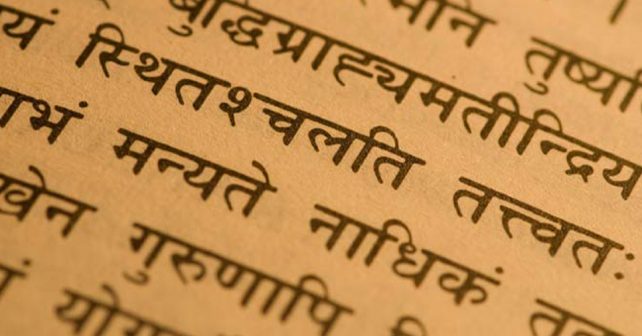 तुष्य
बुद्धिग्राह्यमतीन्द्रिय
यं स्थितश्चलति तत्त्वतः
भं मन्यते नाधिकं
खेन गुरुणापि
योग